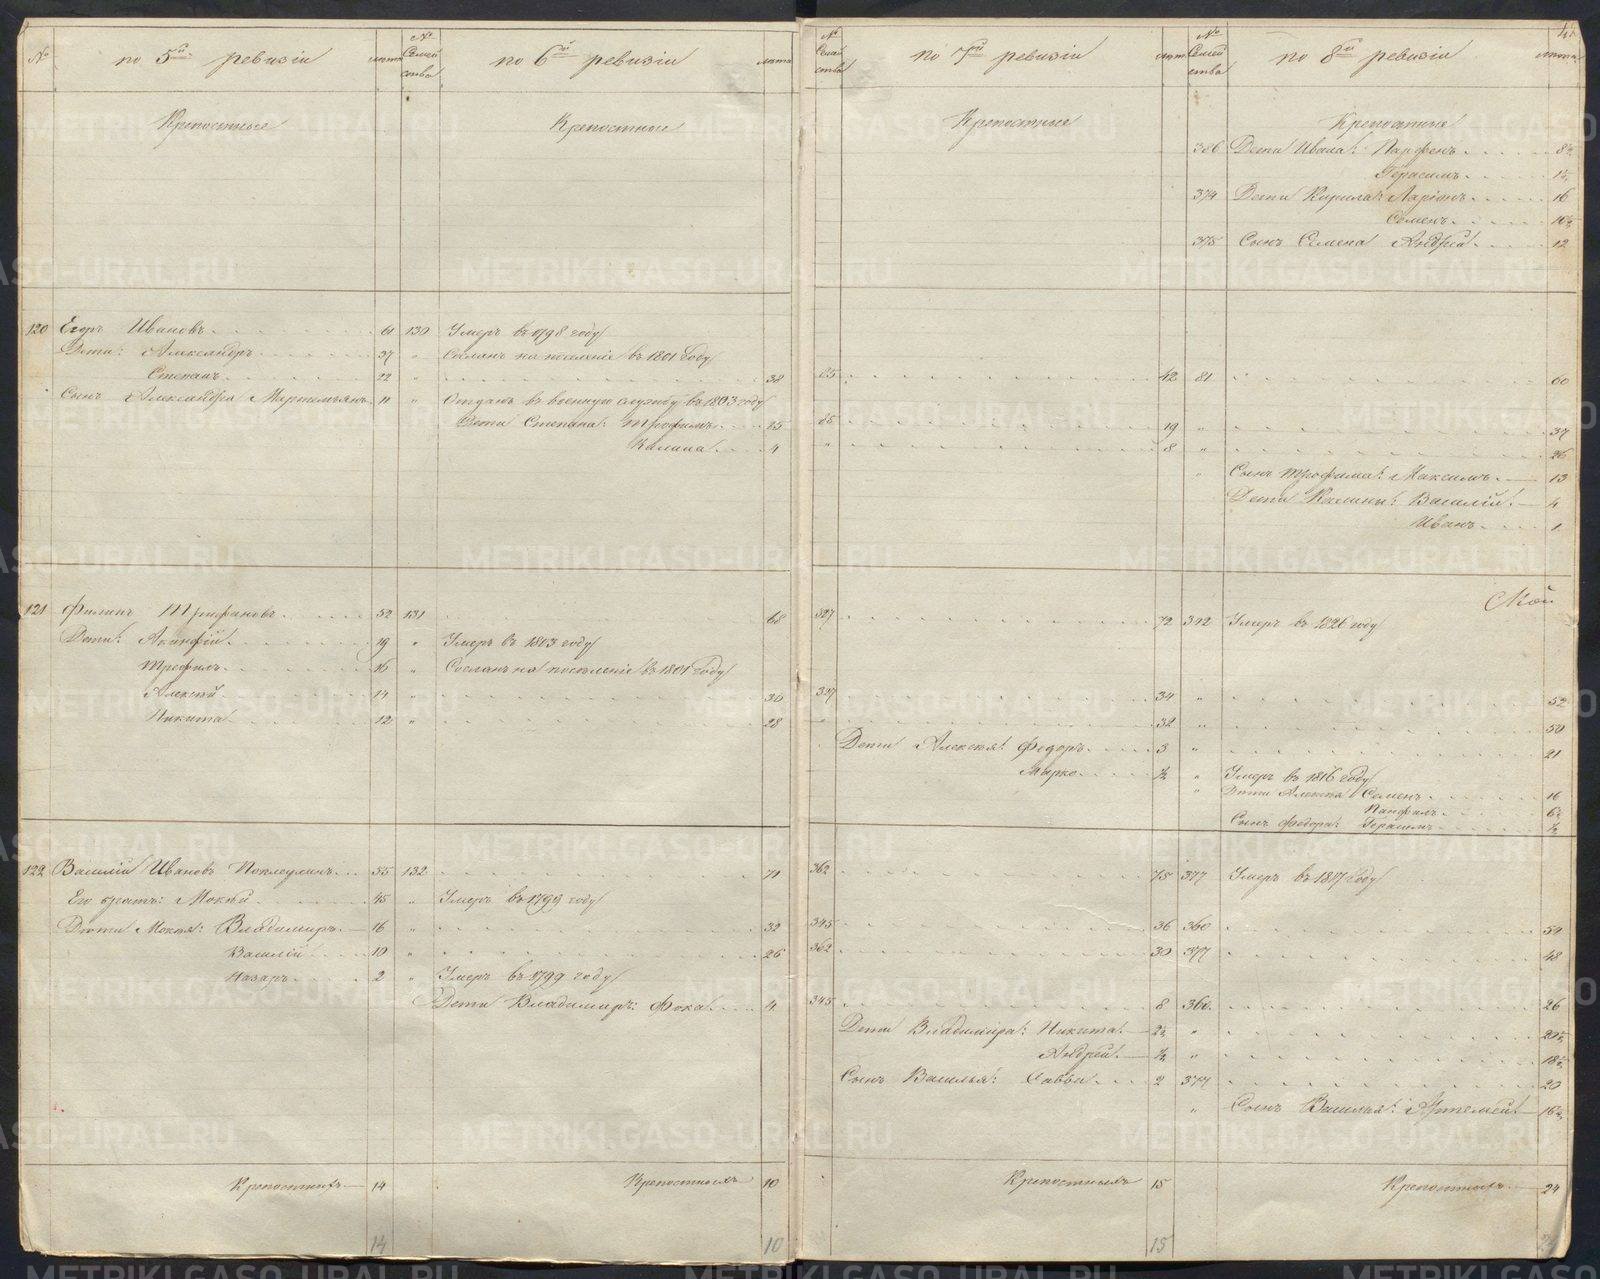 № по 5й ревизіи лѣта № Семейства по 6й ревизіи лѣта № Семейства по 7й ревизіи лѣта № Семейства по 8й ревизіи лѣта
Крепостные Крепостные Крепостные Крепостные
386 Дети Ивана: Парфенъ 8½
Герасимъ 1½
374 Дети Кирила: Ларіонъ 16
Семенъ 10½
375 Сынъ Семена Андрей 12
120 Егоръ Ивановъ 61 130 Умеръ въ 1798 году
Дети: Александръ 37 " Сосланъ на поселеніе въ 1801 году
Степанъ 22 " 38 85 42 81 60
Сынъ Александра Мартемьянъ 11 " Отданъ въ военную службу въ 1803 году
Дети Степана: Трофимъ 15 85 19 " 37
Калина 4 " 8 " 26
" Сынъ Трофима: Максимъ 13
Дети Калины: Василій 4
Иванъ 1
121 Филипъ Трифановъ 52 131 68 327 72 342 Умеръ въ 1826 году
Дети: Акинфій 19 " Умеръ въ 1803 году
Трефилъ 16 " Сосланъ на поселеніе въ 1801 году
Алексѣй 14 " 30 327 34 " 52
Никита 12 " 28 " 32 " 50
Дети Алексѣя: Федоръ 3 " 21
Марко ½ " Умеръ въ 1816 году
" Дети Алексѣя Семенъ 16
Панфилъ 6½
Сынъ Федора: Герасимъ ½
122 Василій Ивановъ 55 132 71 362 75 377 Умеръ въ 1817 году
Его братъ: Мокѣй 45 " Умеръ въ 1799 году
Дети Мокѣя: Владимиръ 16 " 32 345 36 360 54
Василій 10 " 26 362 30 377 48
Назаръ 2 " Умеръ въ 1799 году
Дети Владимиръ: Фока 4 345 8 360 26
Дети Владимира: Никита 2½ " 20½
Андрей ½ " 18½
Сынъ Василья: Савва 2 377 20
" Сынъ Василья: Артемей 16½
Крепостныхъ 14 Крепостныхъ 10 Крепостныхъ 15 Крепостныхъ 24
14 10 15
METRIKI.GASO-URAL.RU